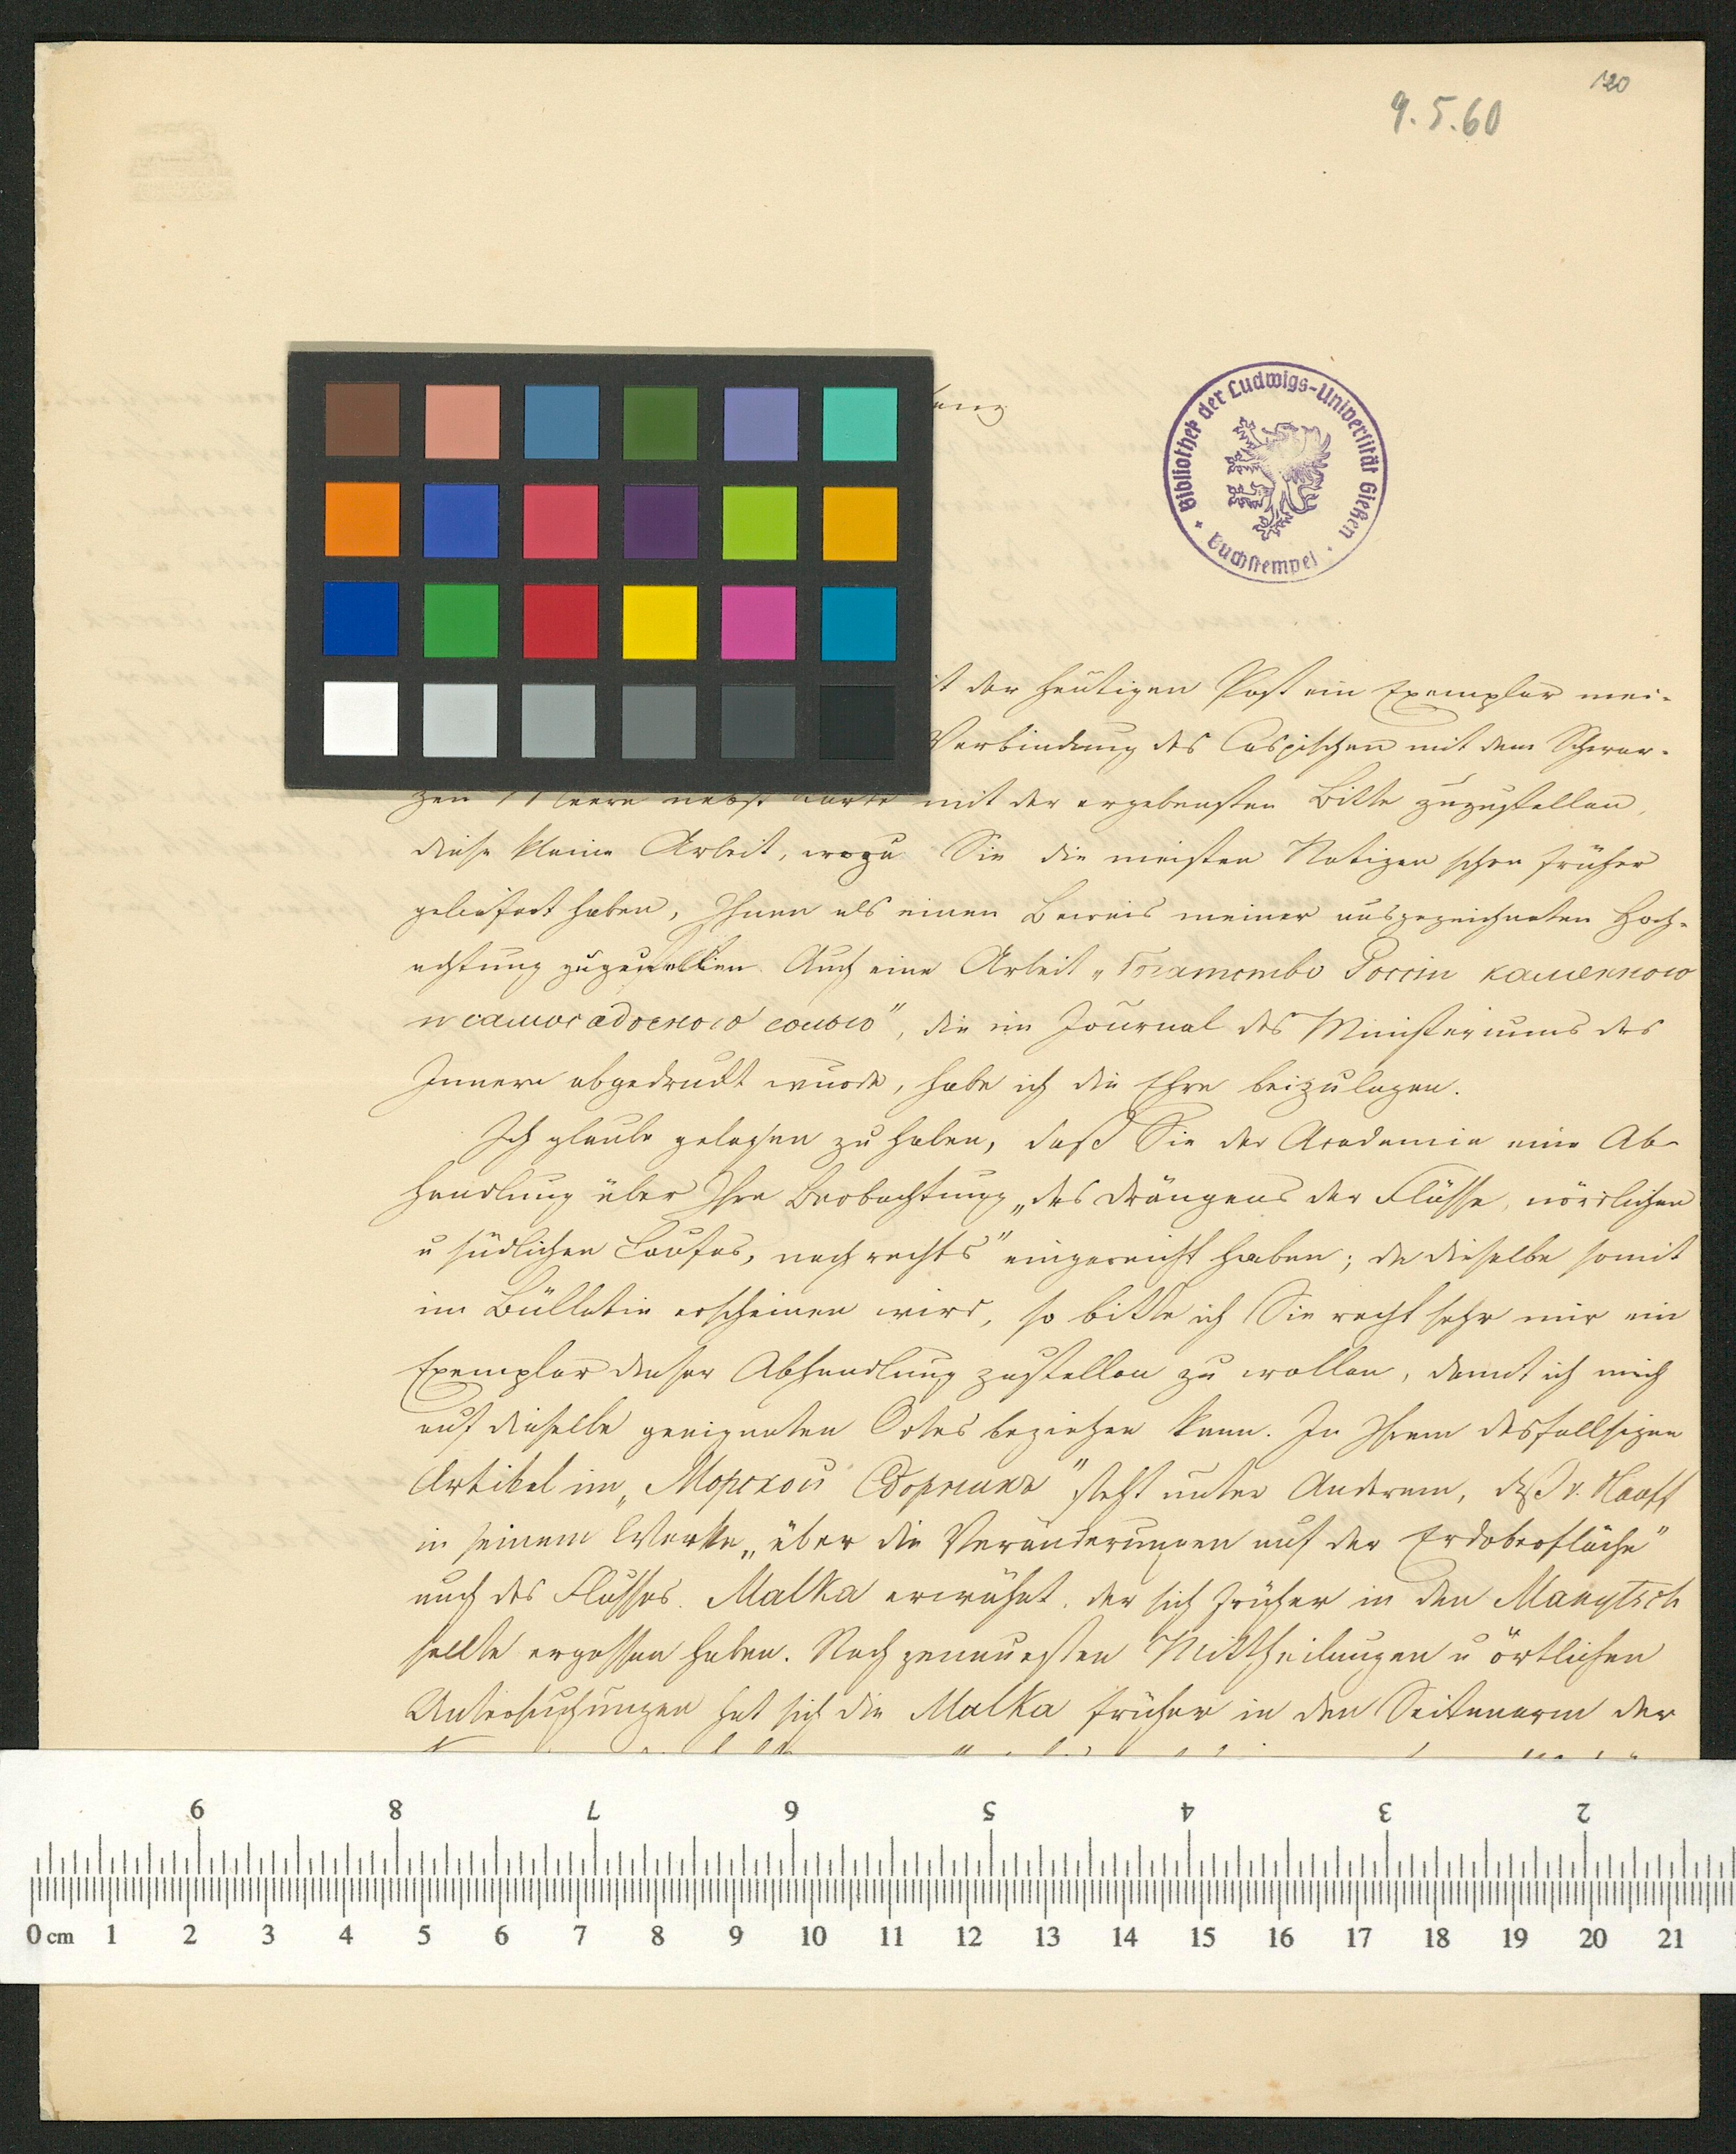 120
9.5.60
Bibliothek der Ludwigs-Universität Gießen
Buchstempel
der heutigen Post ein Exemplar mei-
Verbindung des Caspischen mit dem Schwar-
zen Meere nebst Karte mit der ergebensten Bitte zuzustellen,
diese kleine Arbeit, wozu Sie die meisten Notizen schon früher
geliefert haben, Ihnen als einen Beweis meiner ausgezeichneten Hoch-
achtung zuzustellen. Auch eine Arbeit „Богатство Россіи каменною
и самосадочною солью", die im Journal des Ministeriums des
Innern abgedruckt wurde, habe ich die Ehre beizulegen.
Ich glaube gelesen zu haben, daß Sie der Academie eine Ab-
handlung über Ihre Beobachtung „des Drängens der Flüsse, nördlichen
u südlichen Laufes, nach rechts" eingereicht haben; da dieselbe somit
im Bülletin erscheinen wird, so bitte ich Sie recht sehr mir ein
Exemplar dieser Abhandlung zustellen zu wollen, damit ich mich
auf dieselbe geeigneten Ortes beziehen kann. In Ihrem desfallsigen
Artikel im „Морской Сборникъ" steht unter Anderem, daß v. Hooff
in seinem Werke „über die Veränderungen auf der Erdoberfläche"
auch des Flusses Malka erwähnt, der sich früher in den Manytsch
sollte ergossen haben. Nach genauesten Mittheilungen u örtlichen
Untersuchungen hat sich die Malka früher in den Seitenarm der
9 8 7 6 5 4 3 2
0 cm 1 2 3 4 5 6 7 8 9 10 11 12 13 14 15 16 17 18 19 20 21